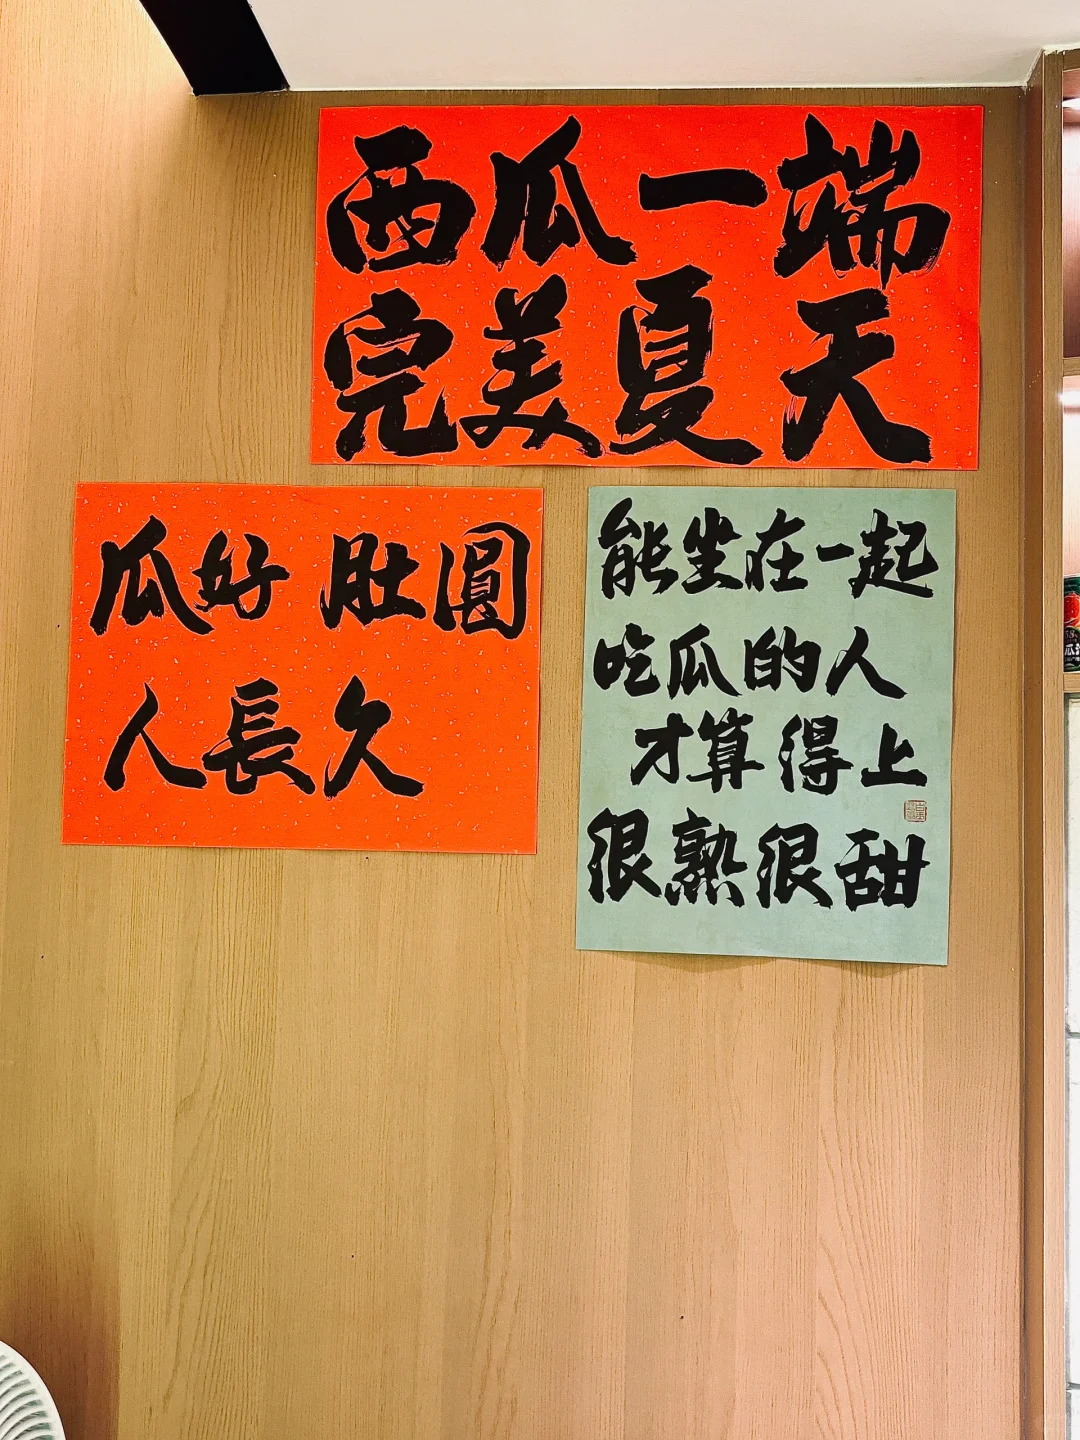 西瓜一端
完美夏天
瓜好肚圓
人長久
能坐在一起
吃瓜的人
才算得上
很熟很甜